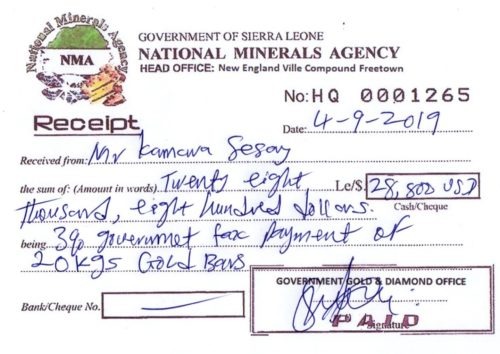 National Minerals Agency
NMA
GOVERNMENT OF SIERRA LEONE
NATIONAL MINERALS AGENCY
HEAD OFFICE: New England Ville Compound Freetown
No: HQ 0001265
Receipt
Date: 4-9-2019
Received from: Mr Kamara Sesay
the sum of: (Amount in words) Twenty eight Le/$: 28,800 USD
Cash/Cheque
thousand, eight hundred dollars.
being 3% government tax payment of
20kgs Gold Bars
GOVERNMENT GOLD & DIAMOND OFFICE
Bank/Cheque No.
PAID
Signature